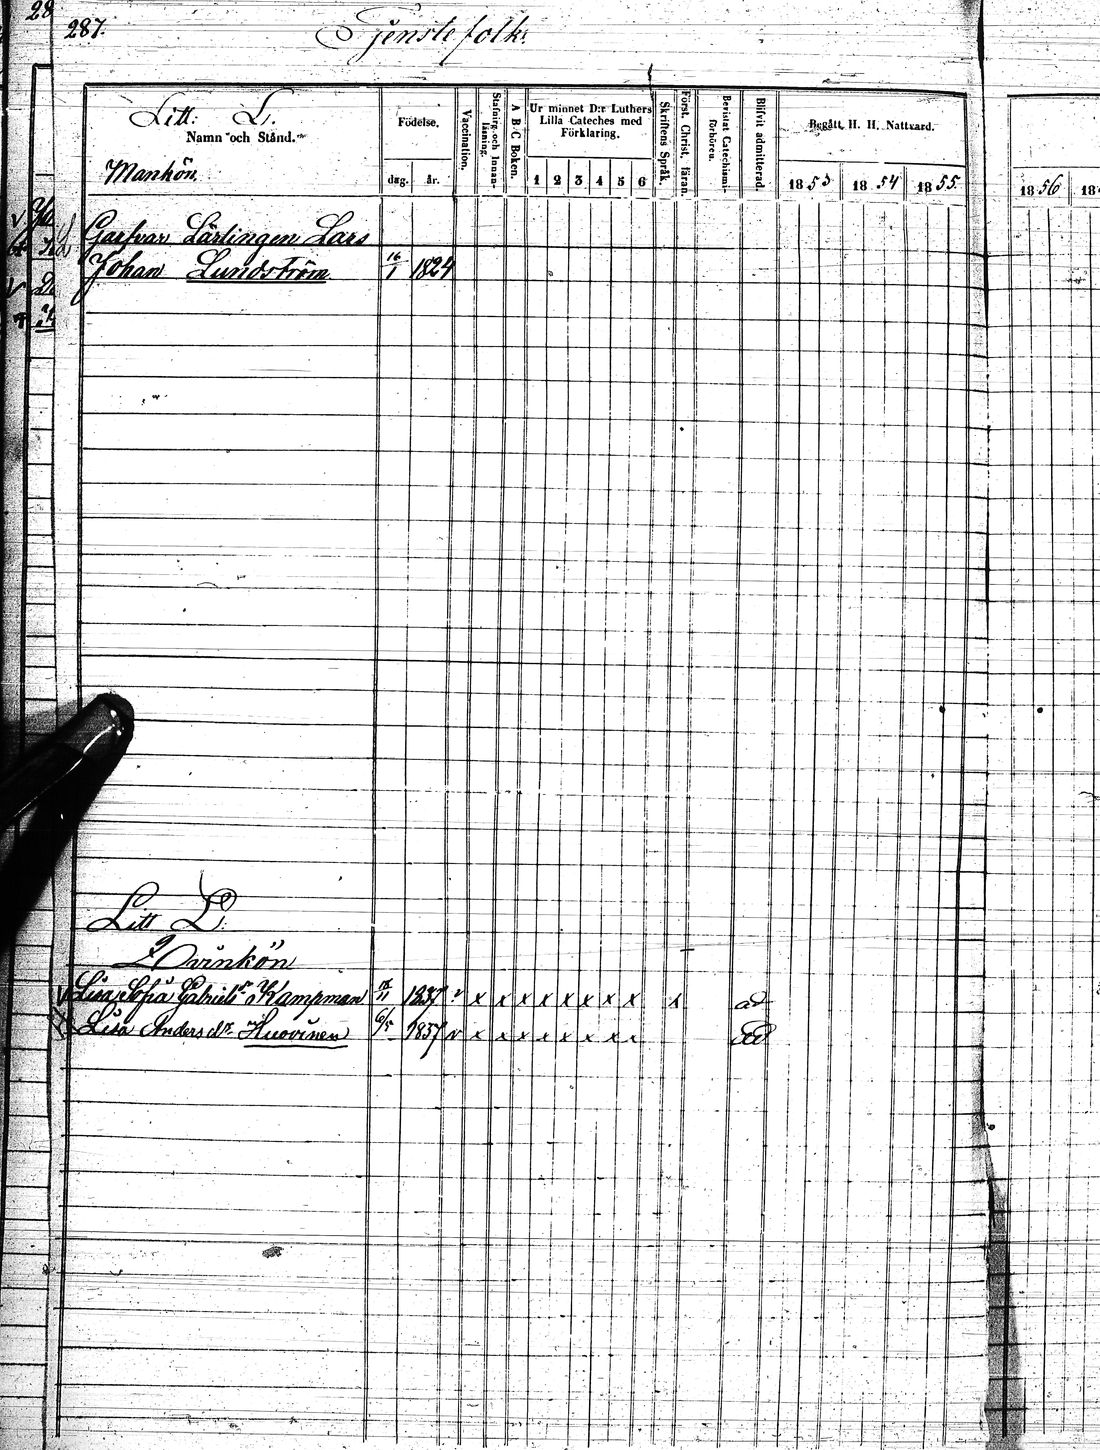 28
287.
Tjenstefolk.
Litt. L.
Namn och Stånd.
Mankön
Födelse.
dag. år.
Vaccination.
Stafning och Innanläsning.
A B C Boken.
Ur minnet D:r Luthers
Lilla Cateches med
Förklaring.
1 2 3 4 5 6
Skriftens Språk.
Först. Christ. läran.
Bevistat Catechismiförhören.
Blifvit admitterad.
Begått H. H. Nattvard.
1853 1854 1855
1856
Garfvar Lärlingen Lars
Johan Lundström 16/1 1824
Litt L
Qvinkön
Lisa Sofia Gabrielsd:r Kampman 1837 v x x x x x x x x x ad
Lisa Andersd:r Huovinen 6/5 1837 v x x x x x x x x ad